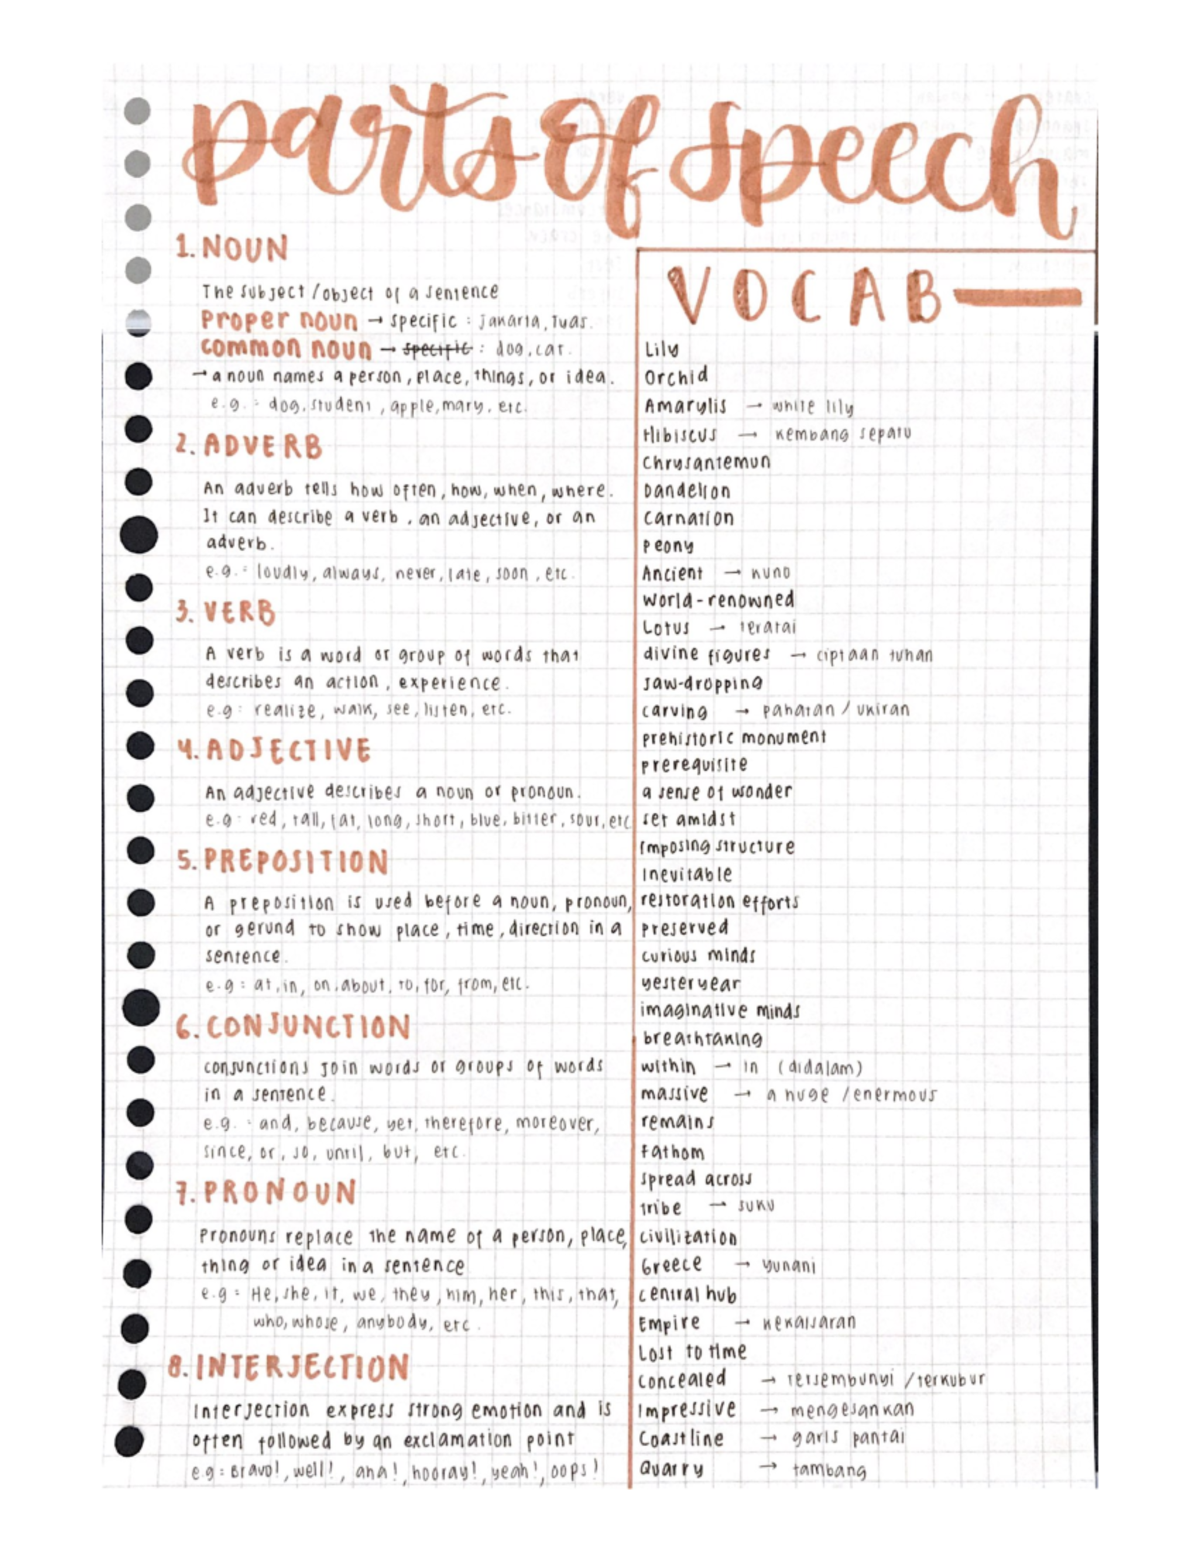 parts of speech
1. NOUN
The subject / object of a sentence
Proper noun → specific : jakarta, Tuas.
common noun → specific : dog, car.
→ a noun names a person, place, things, or idea.
e.g. : dog, student, apple, mary, etc.
2. ADVERB
An adverb tells how often, how, when, where.
It can describe a verb, an adjective, or an
adverb.
e.g. : loudly, always, never, late, soon, etc.
3. VERB
A verb is a word or group of words that
describes an action, experience.
e.g : realize, walk, see, listen, etc.
4. ADJECTIVE
An adjective describes a noun or pronoun.
e.g : red, tall, fat, long, short, blue, bitter, sour, etc
5. PREPOSITION
A preposition is used before a noun, pronoun,
or gerund to show place, time, direction in a
sentence.
e.g : at, in, on, about, to, for, from, etc.
6. CONJUNCTION
conjunctions join words or groups of words
in a sentence.
e.g. : and, because, yet, therefore, moreover,
since, or, so, until, but, etc.
7. PRONOUN
Pronouns replace the name of a person, place,
thing or idea in a sentence
e.g : He, she, it, we, they, him, her, this, that,
who, whose, anybody, etc.
8. INTERJECTION
Interjection express strong emotion and is
often followed by an exclamation point
e.g : Bravo!, well!, aha!, hooray!, yeah!, oops!
VOCAB
Lily
Orchid
Amarylis → white lily
Hibiscus → kembang sepatu
Chrysantemun
Dandelion
Carnation
Peony
Ancient → kuno
World-renowned
Lotus → teratai
divine figures → ciptaan tuhan
jaw-dropping
carving → pahatan / ukiran
prehistoric monument
prerequisite
a sense of wonder
set amidst
Imposing structure
Inevitable
restoration efforts
preserved
curious minds
yesteryear
imaginative minds
breathtaking
within → in (didalam)
massive → a huge / enermous
remains
Fathom
spread across
tribe → suku
civilization
Greece → yunani
central hub
Empire → kekaisaran
Lost to time
Concealed → tersembunyi / terkubur
Impressive → mengesankan
Coastline → garis pantai
Quarry → tambang